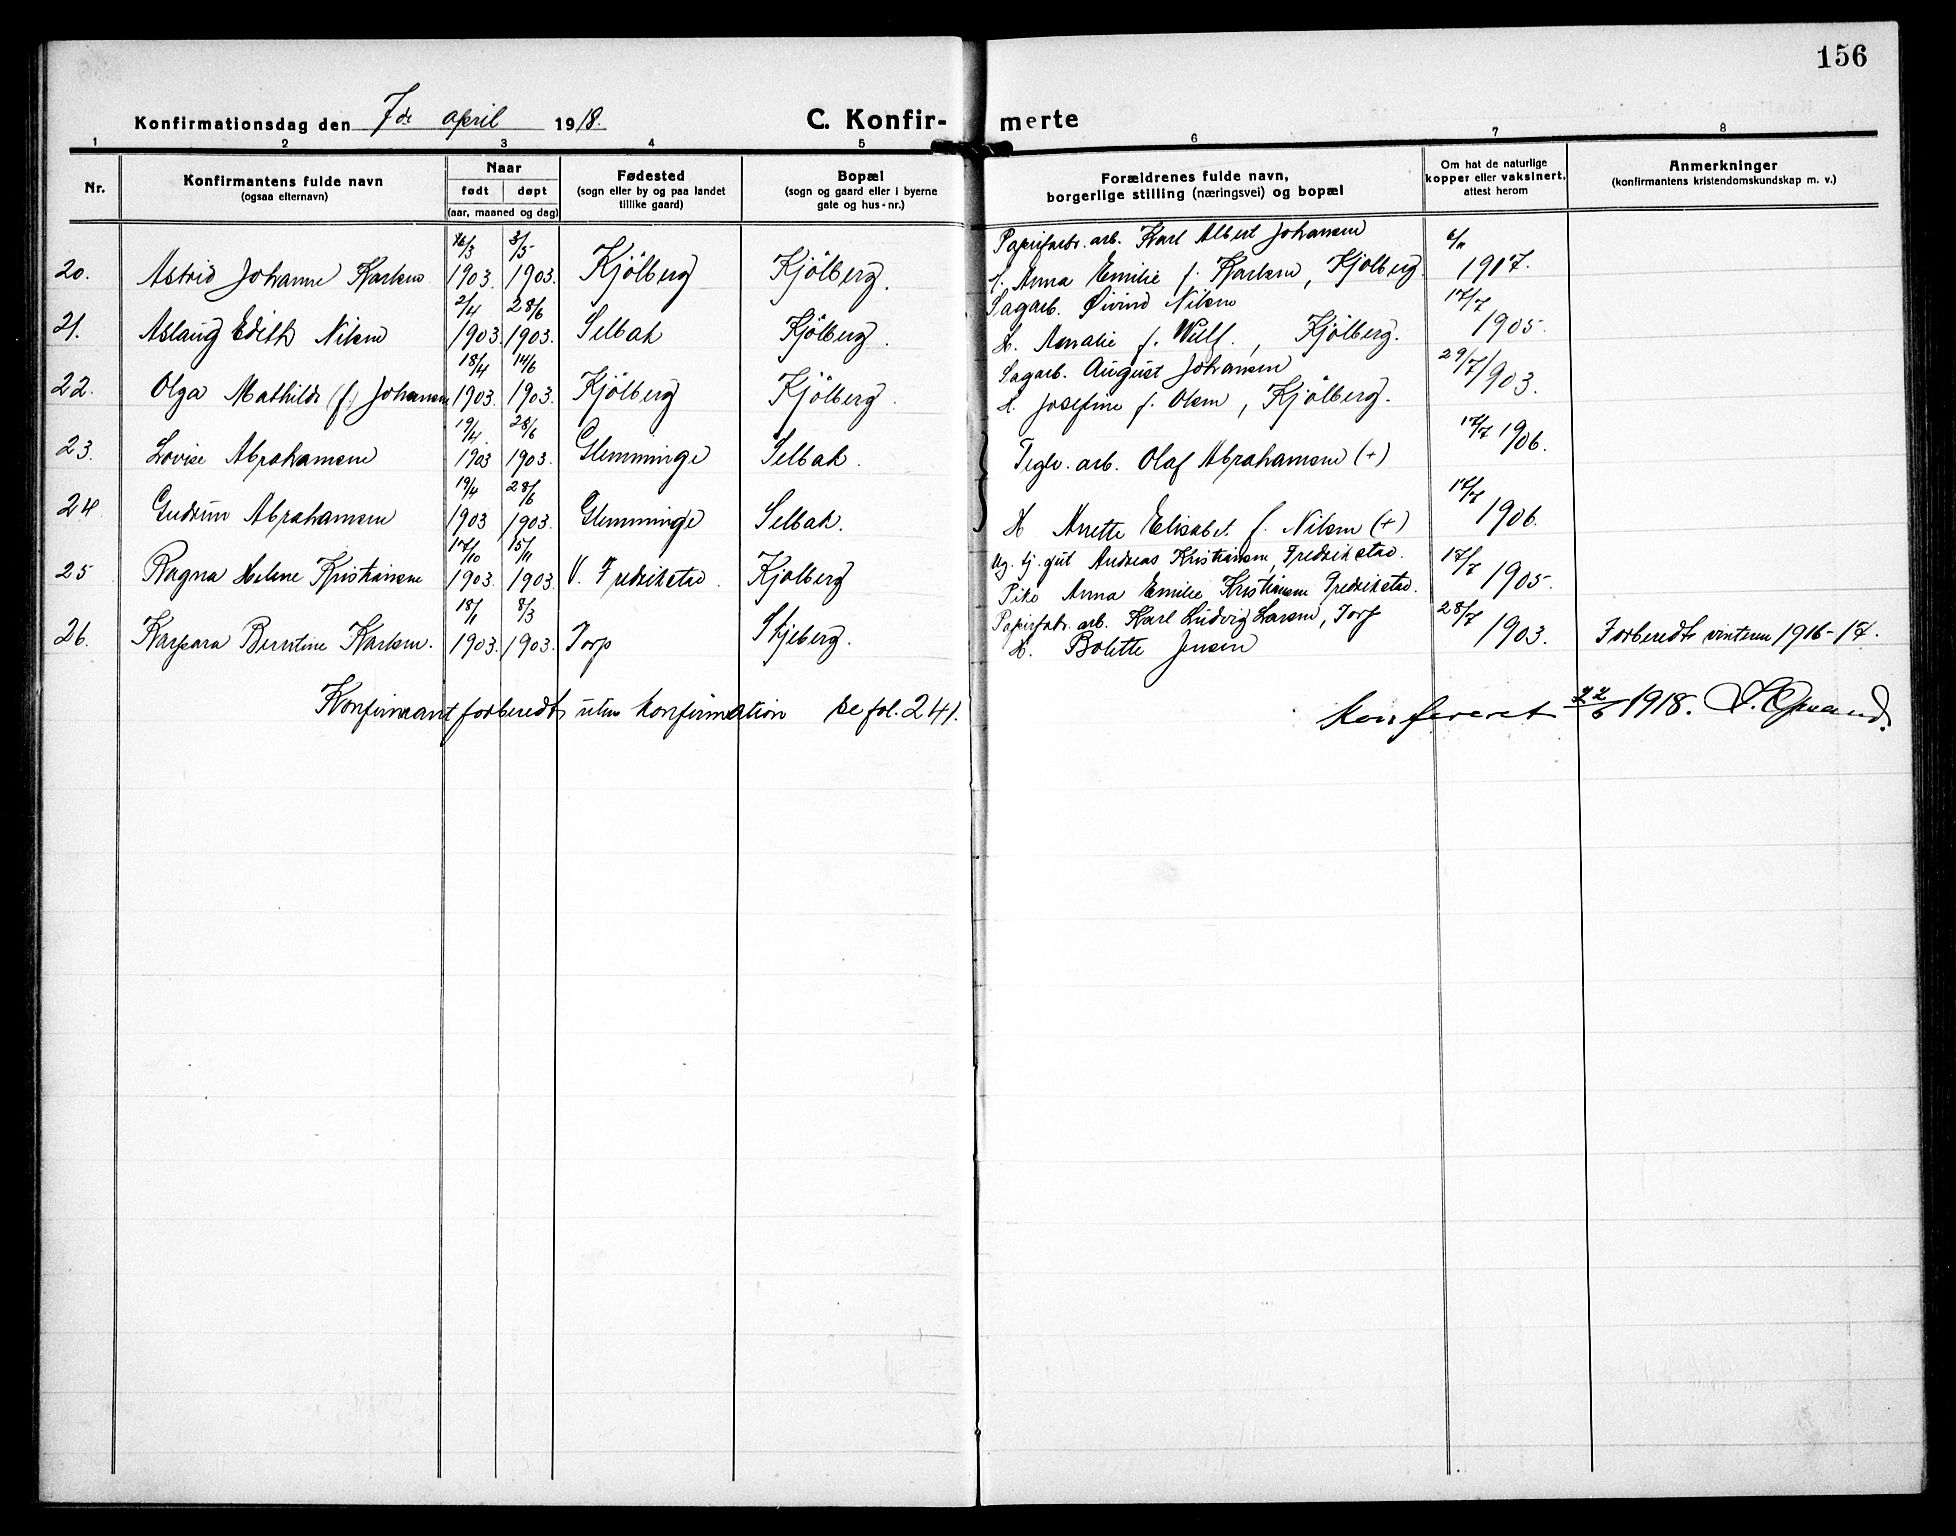 156
Konfirmationsdag den 7de april 1918.
C. Konfirmerte
1 2 3 4 5 6 7 8
Nr.
Konfirmantens fulde navn
(ogsaa efternavn)
Naar
født døpt
(aar, maaned og dag)
Fødested
(sogn eller by og paa landet
tillike gaard)
Bopæl
(sogn og gaard eller i byerne
gate og hus-nr.)
Forældrenes fulde navn,
borgerlige stilling (næringsvei) og bopæl
Om hat de naturlige
kopper eller vaksinert,
attest herom
Anmerkninger
(konfirmantens kristendomskundskap m. v.)
3/5 Papirfabr. arb. Karl Albert Johansen
20. Astrid Johanne Karlsen 1903. 1903. Kjölberg Kjölberg. H. Anna Emilie f. Karlsen, Kjölberg. 1917.
2/4 28/6 Sagarb. Øivind Nilsen 17/7
21. Aslaug Edith Nilsen 1903. 1903. Selbak Kjölberg. H. Amalie f. Wulf., Kjölberg. 1905.
18/4 14/6 Sagarb. August Johansen 29/7
22. Olga Mathilde (f.) Johansen 1903. 1903. Kjölberg Kjölberg. H. Josefine f. Olsen, Kjölberg. 1903.
19/4 28/6 17/7
23. Lovise Abrahamsen 1903 1903. Glemminge Selbak. Teglv. arb. Olaf Abrahamsen (+) 1906.
19/4 28/6 17/7
24. Gudrun Abrahamsen 1903 1903. Glemminge Selbak. H Anette Elisabet f. Nilsen (+) 1906.
17/10 15/11 Ug. tj. gut Andreas Kristiansen, Fredrikstad. 17/7
25 Ragna Helene Kristiansen 1903. 1903. V. Fredrikstad. Kjölberg Pike Anna Emilie Kristiansen Fredrikstad. 1905.
18/1 8/3 Papirfabr. arb. Karl Ludvig Larsen, Torp 28/7
26. Karpara Berntine Karlsen. 1903. 1903. Torp Skjeberg. H. Bolette Jensen 1903. Forberedt vinteren 1916-17.
Konfirmant forberedt uten konfirmation se fol. 241.
Konfereret 22/6 1918.